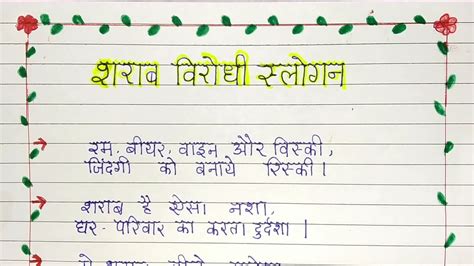 शराब विरोधी स्लोगन
रम, बीयर, वाइन और विस्की,
जिंदगी को बनाये रिस्की।
शराब है ऐसा नशा,
घर-परिवार का करता दुर्दशा।